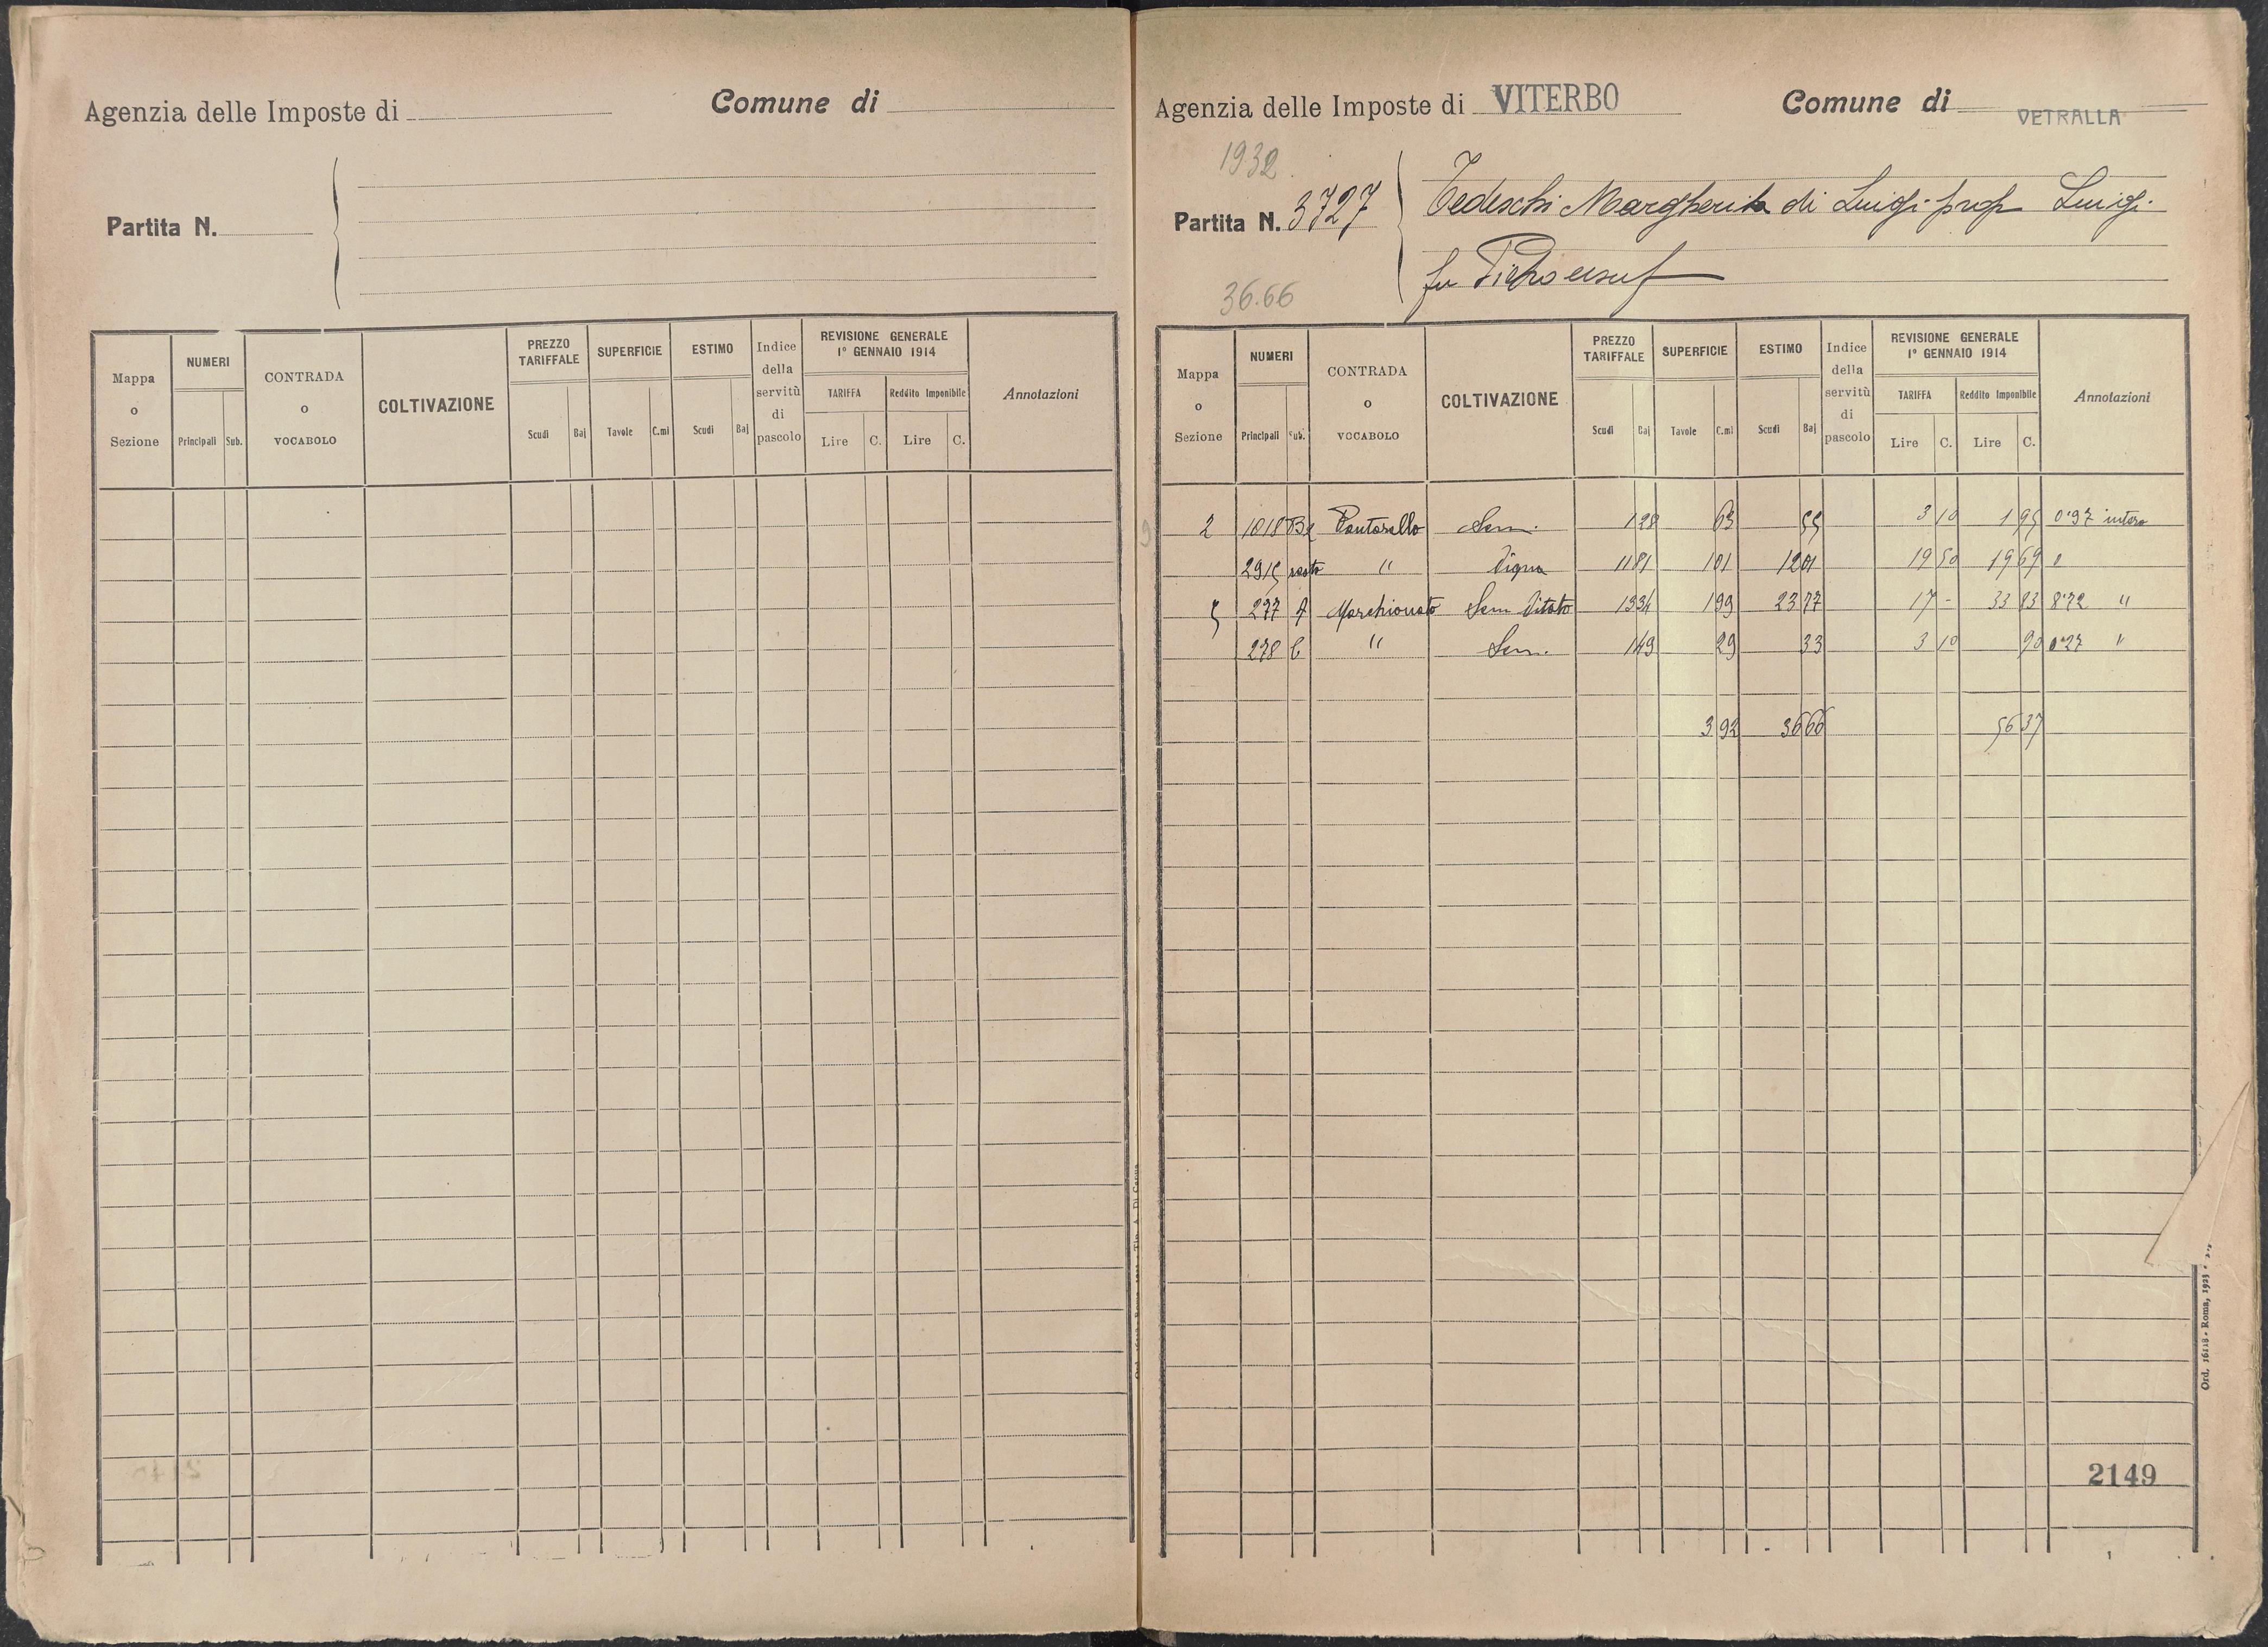 Agenzia delle Imposte di
Comune di
Partita N.
Mappa o Sezione
NUMERI
Principali Sub.
CONTRADA o VOCABOLO
COLTIVAZIONE
PREZZO TARIFFALE
Scudi Baj
SUPERFICIE
Tavole C.mi
ESTIMO
Scudi Baj
Indice della servitù di pascolo
REVISIONE GENERALE 1° GENNAIO 1914
TARIFFA Reddito Imponibile
Lire C. Lire C.
Annotazioni
Agenzia delle Imposte di VITERBO
Comune di VETRALLA
1932
Partita N. 3727
Tedeschi Margherita di Luigi prop Luigi
fu Pietro usuf
36.66
Mappa o Sezione
NUMERI
Principali Sub.
CONTRADA o VOCABOLO
COLTIVAZIONE
PREZZO TARIFFALE
Scudi Baj
SUPERFICIE
Tavole C.mi
ESTIMO
Scudi Baj
Indice della servitù di pascolo
REVISIONE GENERALE 1° GENNAIO 1914
TARIFFA Reddito Imponibile
Lire C. Lire C.
Annotazioni
2 1018 Sem. 63 55 3 10 1 95 0'97 intero
2915 resto " Vigna 11 81 1 01 12 01 19 50 19 69
5 277 A Marchionato Sem Vitato 1 99 23 77 17 - 33 83 8'72 "
278 " Sem. 1 49 29 33 3 10 90 0'27 "
3 92 36 66 56 37
2149
Ord. 16118 - Roma, 1923